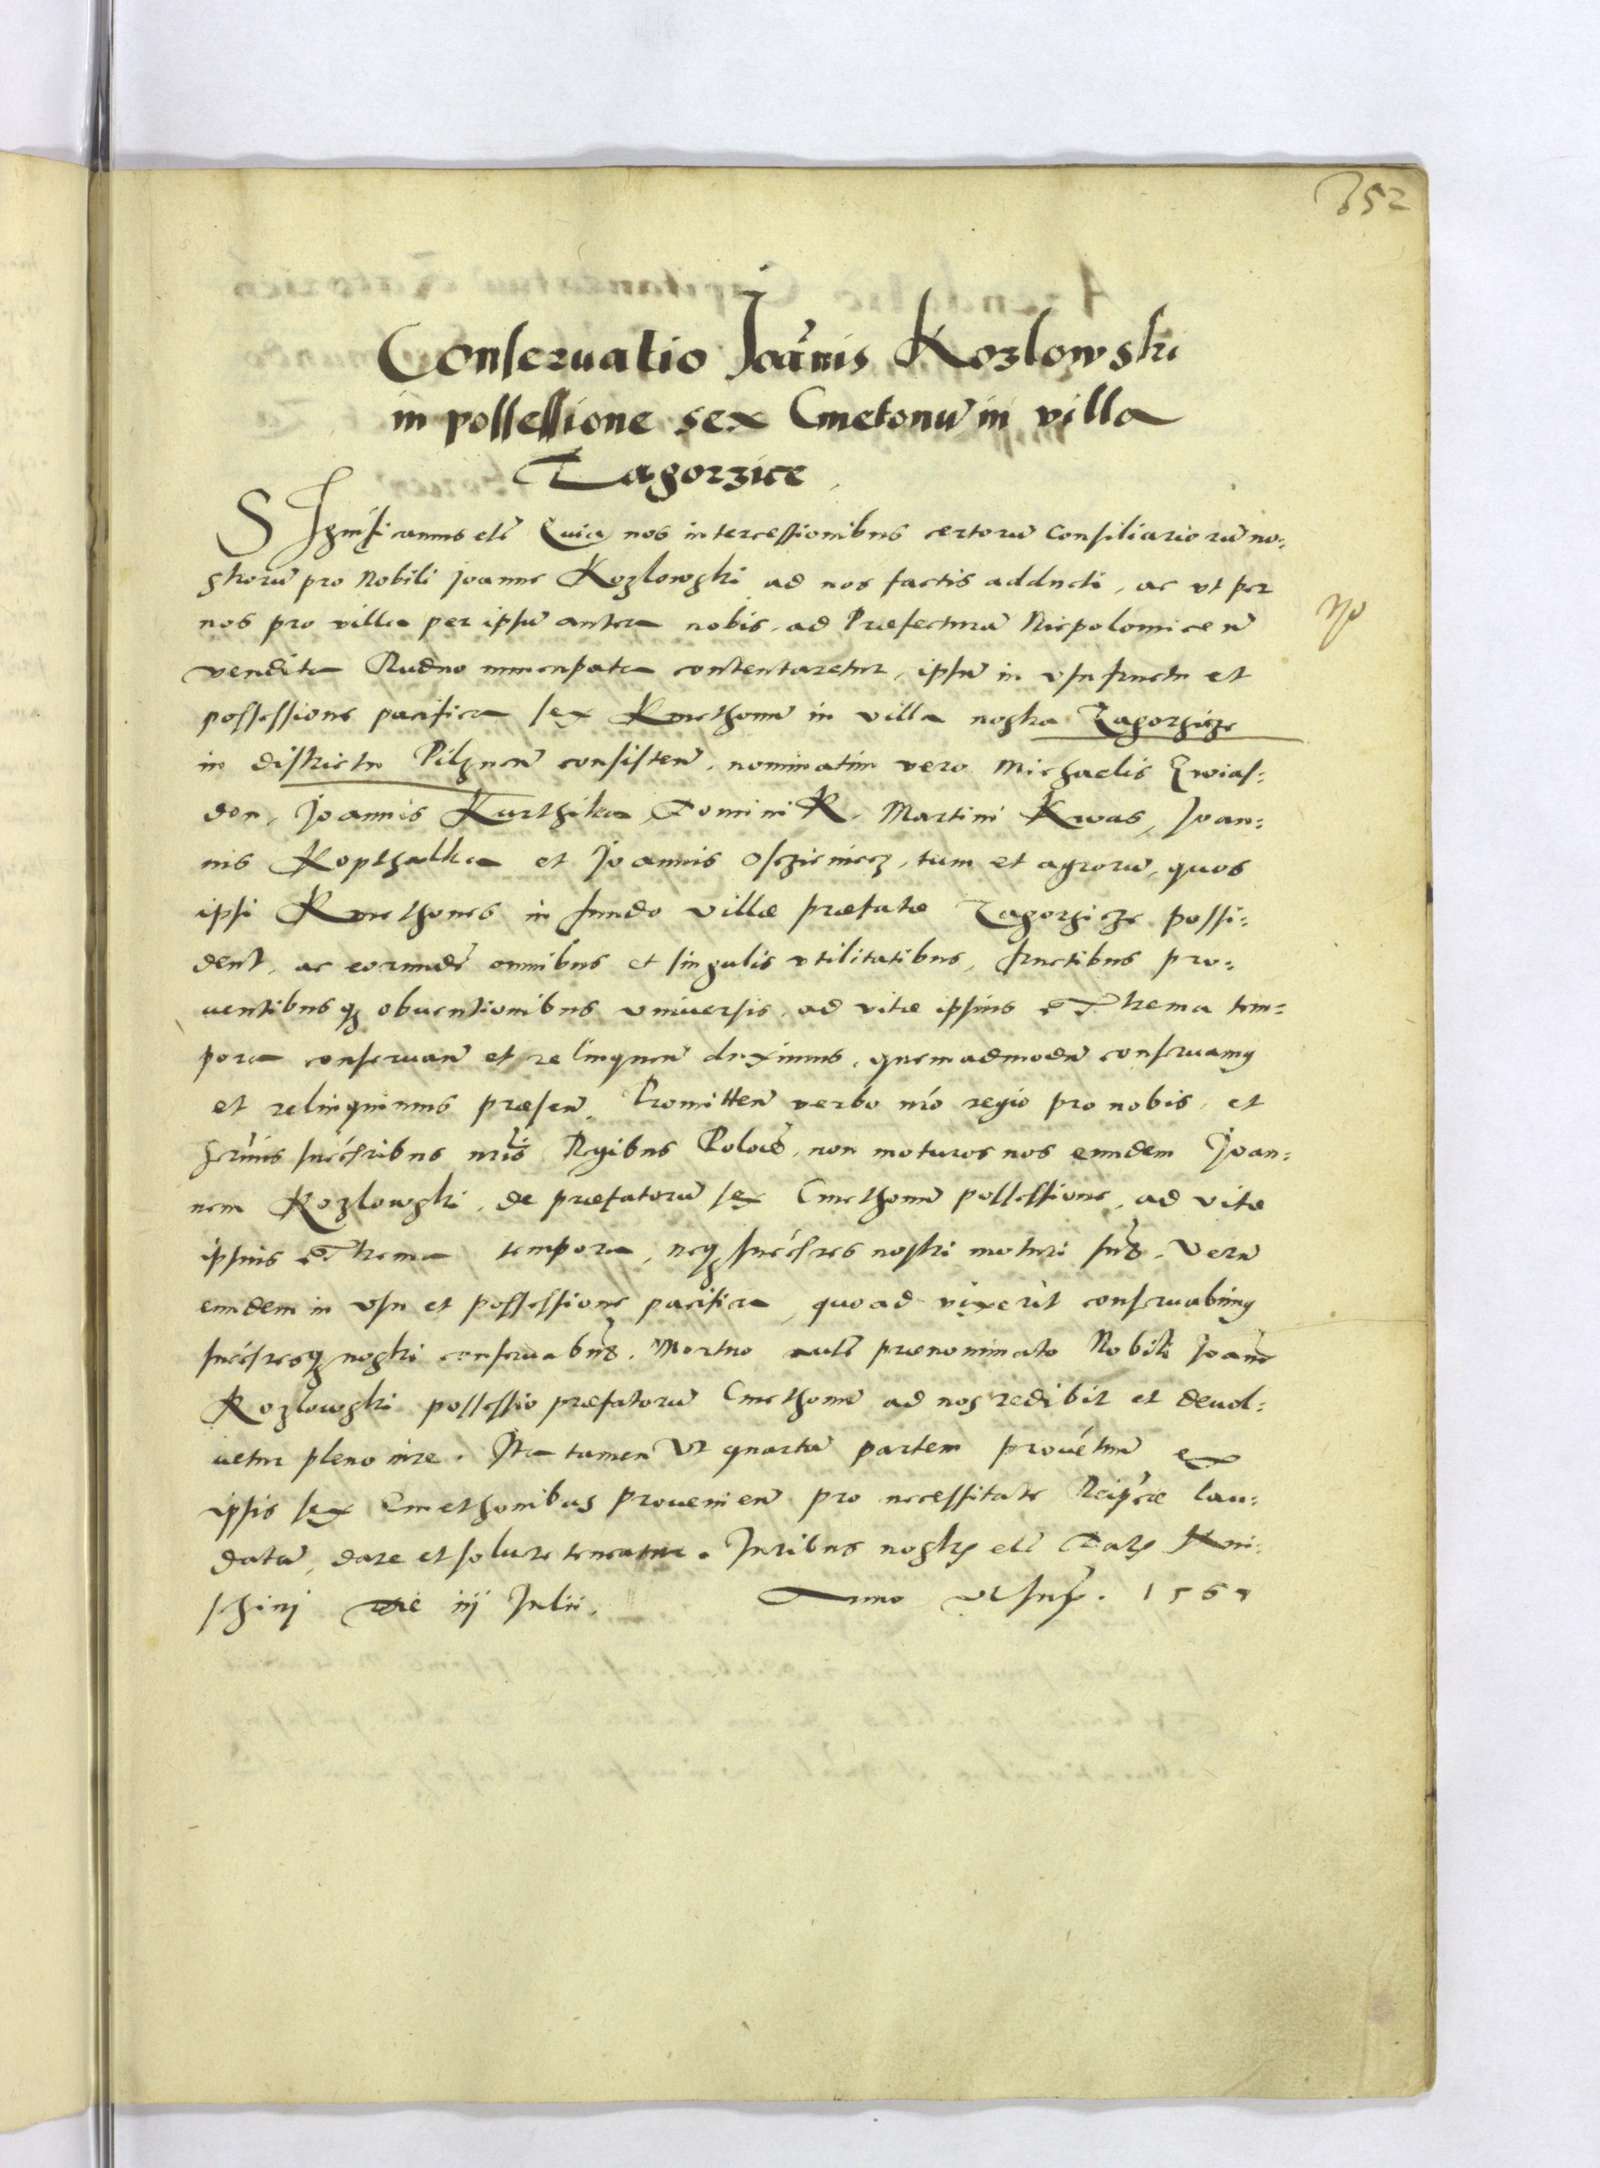 352
Conseruatio Joānis Kozlowski
in possessione sex Cmetonū in villa
Zagorzice
SIgnificamus etc̄ Quia nos intercessionibus certorū Consiliariorū no:
strorū pro Nobili Joanne Kozlowski ad nos factis adducti, ac vt per
nos pro villa per ipsū antea nobis, ad Præfecturā Niepolomiceñ
vendita Rudno nuncupata contentaretur, ipsū in vsufructu et
possessione pacifica sex Kmethonū in villa nostra Zagorzicze
in districtu Pilzneñ consisteñ, nominatim vero Michaelis Gwias:
don, Joannis Kurthika, Dominik, Martini Kwas, Joan:
nis Kopthalka et Joannis Oszienicz, tum et agrorū, quos
ipsi Kmethones in fundo villæ præfatæ Zagorzicze possi:
dent, ac eorundē omnibus et singulis vtilitatibus, fructibus pro:
uentibusq obuentionibus vniuersis, ad vitæ ipsius extrema tem:
pora conseruan̄ et relinquen̄ duximus, quemadmodū conseruamꝰ
et relinquimus præsen̄. Promitten̄ verbo nr̄o regio pro nobis, et
Serm̄is succ̄soribus nr̄is Regibus Polon̄, non moturos nos eundem Joan:
nem Kozlowski, de præfatorū sex Cmethonū possessione, ad vitæ
ipsius extrema tempora, neq succ̄sores nostri moturi sūt. Verū
eundem in vsu et possessione pacifica, quoad vixerit conseruabimꝰ
succ̄soresq nostri conseruabūt. Mortuo autē prænominato Nobili Joañe
Kozlowski possessio præfatorū Cmethonū ad nos redibit et deuol:
uetur pleno iure. Ita tamen Vt quartā partem prouētuū ex
ipsis sex Cmethonibus prouenien̄ pro necessitate Reip̄cæ lau:
datā, dare et soluere teneatur. Juribus nostris etc̄ Datꝭ Kni:
schinj die iij Julii. Anno vt supr̄. 1565